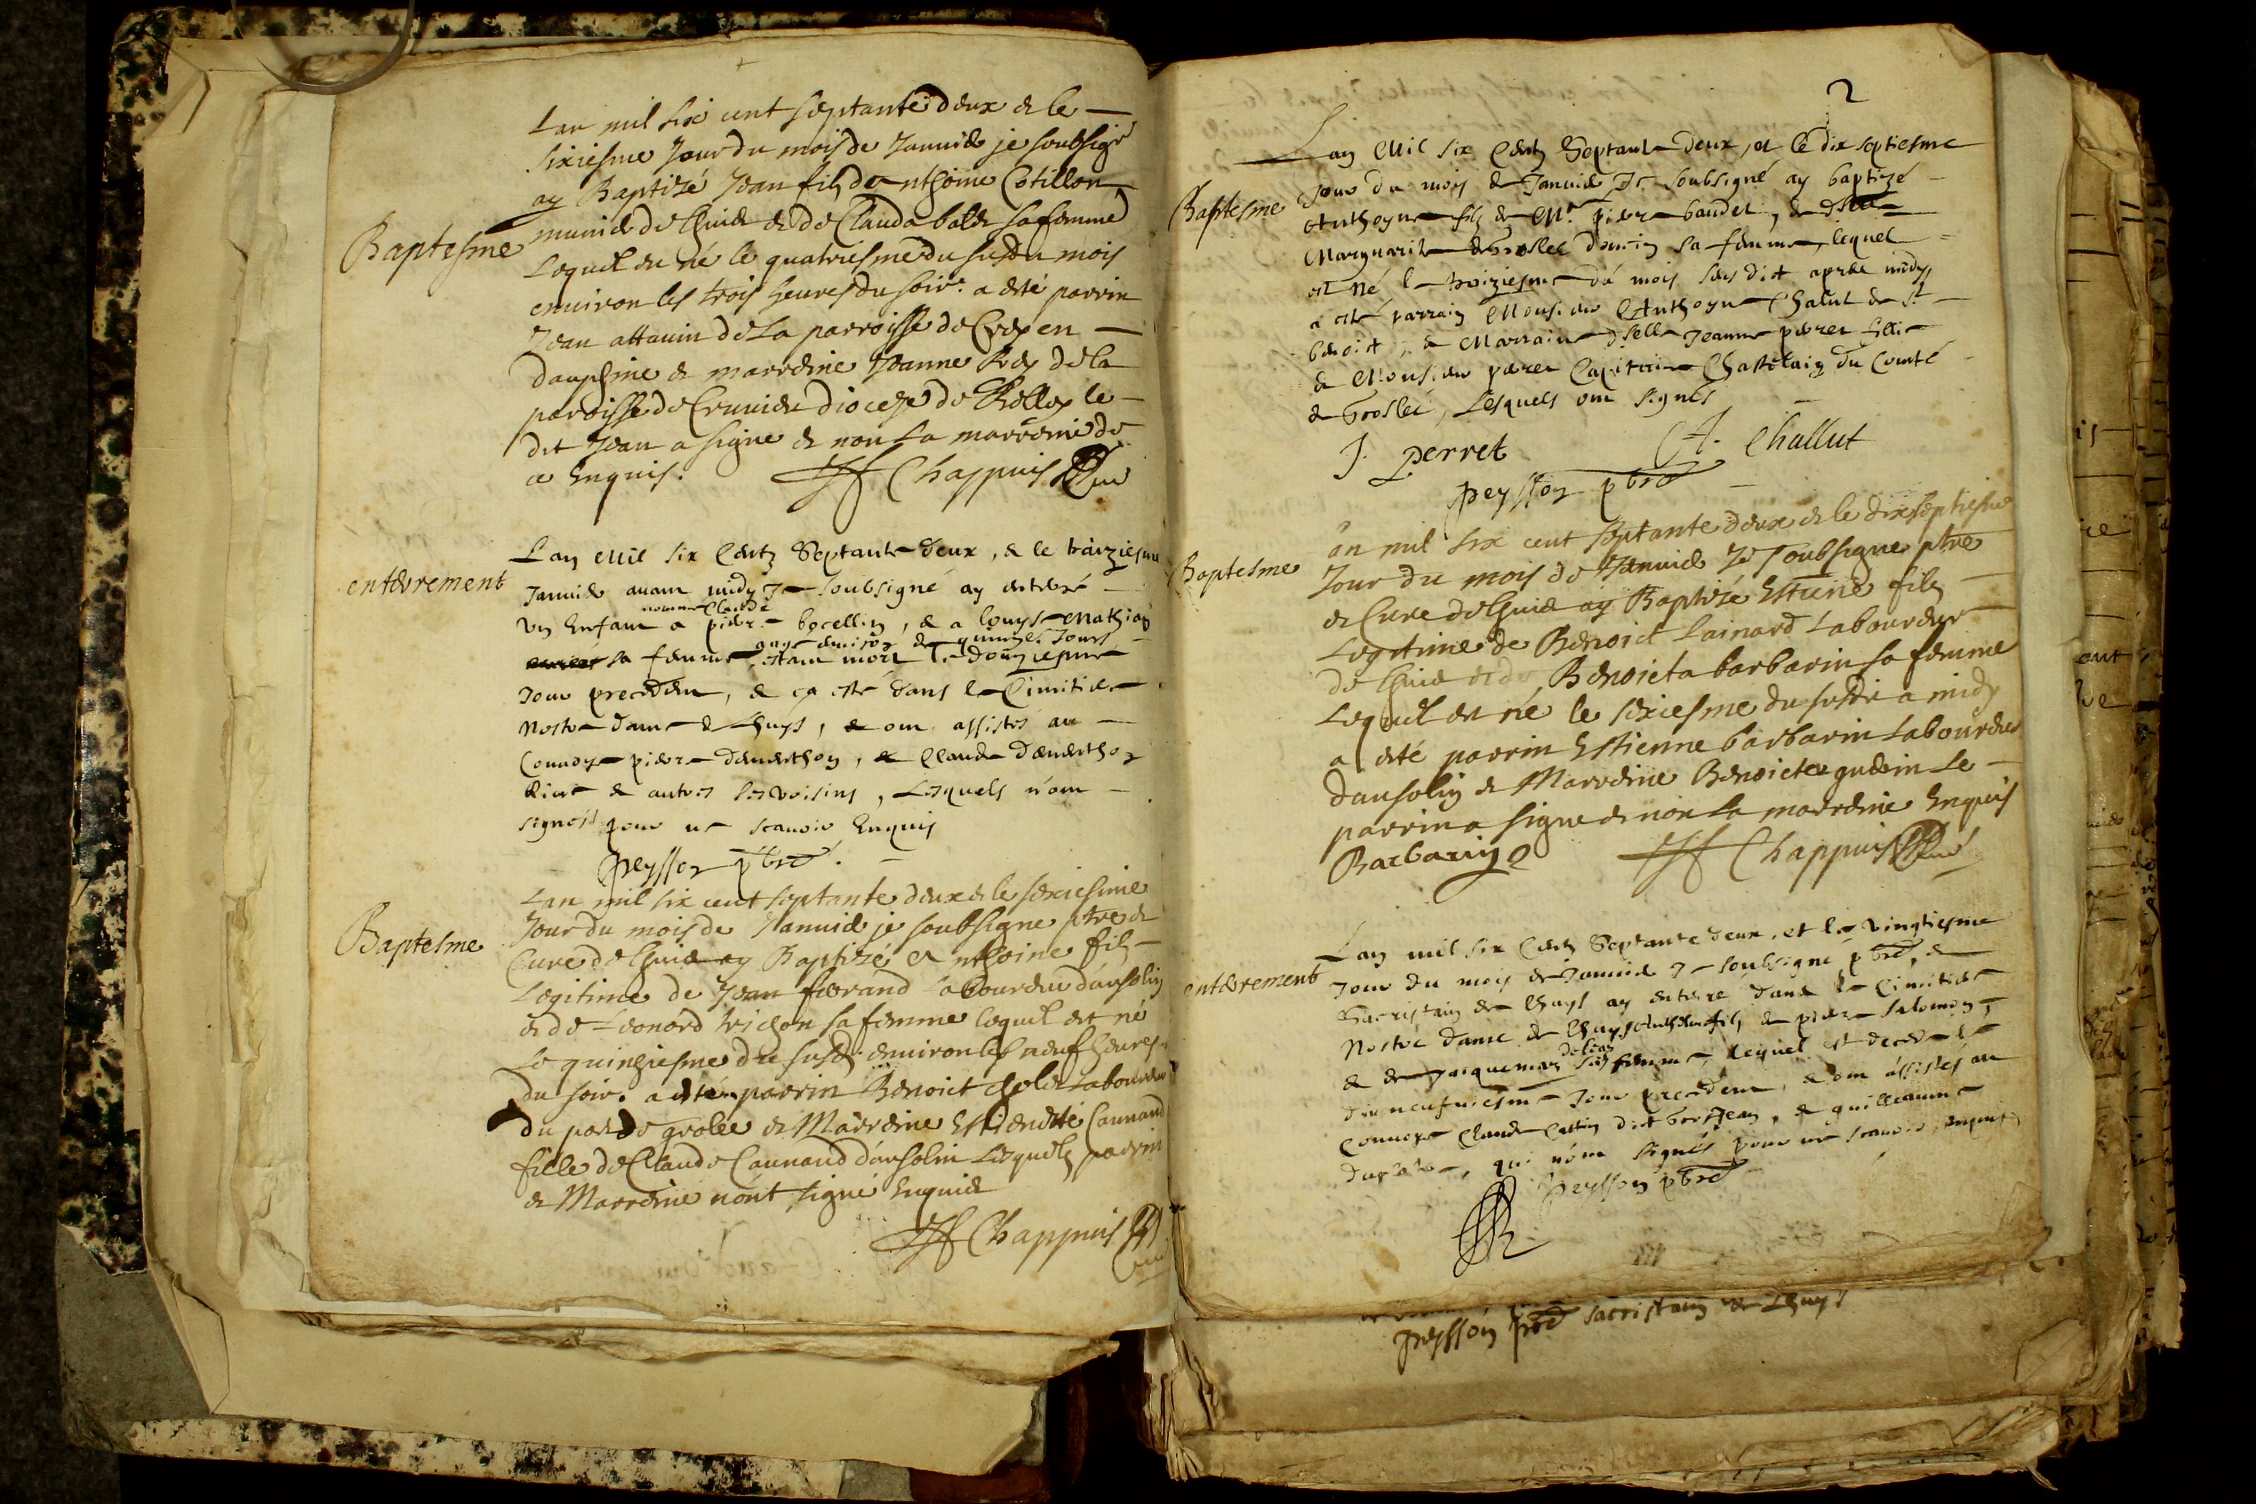 Lan mil six cent septante deux et le
sixiesme Jour du mois de Janvier je soubsigé
ay Baptizé Jean filz danthoine Cotillon
munier de Lhuis et de Clauda sa femme
Baptesme
Lequel est né le quatriesme du susdt mois
environ les trois heures du soir. a esté parrin
Jean attavin de La parroisse de Crep en
dauphine et marreine Jeanne Rey de la
parroisse de Crunieu diocese de le
dit Jean a signe et non La marreine de
ce Enquis. Chappuis Cure
entterement
Lan Mil six Centz Septante deux, et le traiziesme
Janvier avant midy Je soubsigné ay enterré
nomme Claude
un Enfant a pierre bocellin, et a Louyse Mathias
aagé environ de quinze Jours
sa femme, estant mort le douziesme
Jour precedent, et ça esté dans le Cimitiere
Nostre dame de Lhuys, et ont assistés au
Convoye pierre Danverthoz, et Claude Danverthoz
et autres ses voisins, Lesquels n'ont
signés pour ne scavoir Enquis
peysson pbre.
Baptesme
Lan mil six cent septante deux et le seziesme
Jour du mois de Janvier je soubsigne ptre et
Cure de Lhuis ay Baptizé Anthoine filz
Legitime de Jean ferrand Laboureur dansolin
et de Leonord trichon sa femme lequel est né
Le quinziesme du susdt environ les neuf heures
du soir. a esté parrin Benoict Laboureur
du port de grolée et Marreine Estiennette Caunand
fille de Claude Caunand d'ansolin Lesquelz parrin
et Marreine n'ont signé Enquis
Chappuis
Cure
2
Lan Mil six Centz Septante deux, et le dix septiesme
Jour du mois de Janvier Je soubsigné ay baptizé
Baptesme
Anthoyne filz de Mr. pierre baudet, et dlle
Marguarite sa femme, lequel
est né le troiziesme du mois sus dict apres midy,
a esté parrain Monsieur Anthoyne Chalut de st
benoist, et Marraine dlle Jeanne perret fille
de Monsieur perret Capitaine Chastelain du Comté
de Groslee, Lesquels ont signés
J. perret A. Challut
peysson pbre
Lan mil six cent septante deux et le dixseptiesme
Baptesme
Jour du mois de Janvier Je soubsigne ptre
et Cure de Lhuis ay Baptizé Estiene filz
Legitime de Benoict Lainard Laboureur
de Lhuis et de Benoicta barbarin sa femme
Lequel est né le seziesme du susdt a midy
a esté parrin Estienne barbarin Laboureur
dansolin et Marreine Benoicte guerin Le
parrin a signe et non La marreine Enquis
Barbarin Chappuis Curé
Lan mil six Centz Septante deux, et le vingtiesme
entterement
Jour du mois de Janvier Je soubsigné pbre, et
Sacristain de Lhuys ay enterré dans le Cimitiere
Nostre dame de Lhuys filz de pierre salomon,
et de sa femme, lequel est decedé le
dix neufviesme Jour precedent, et ont assistés au
Convoye Claude dict, et guilleaume
, qui n'ont signés pour ne scavoir enquis
peysson pbre
peysson pbre sacristain de Lhuys